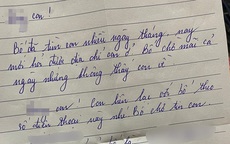 con!
Bố đã tìm con nhiều ngày tháng nay
mới hỏi được địa chỉ con ở. Bố chờ mãi cả
ngày nhưng không thấy con về
con! Con liên lạc với bố theo
số điện thoại này nhé Bố chờ tin con.